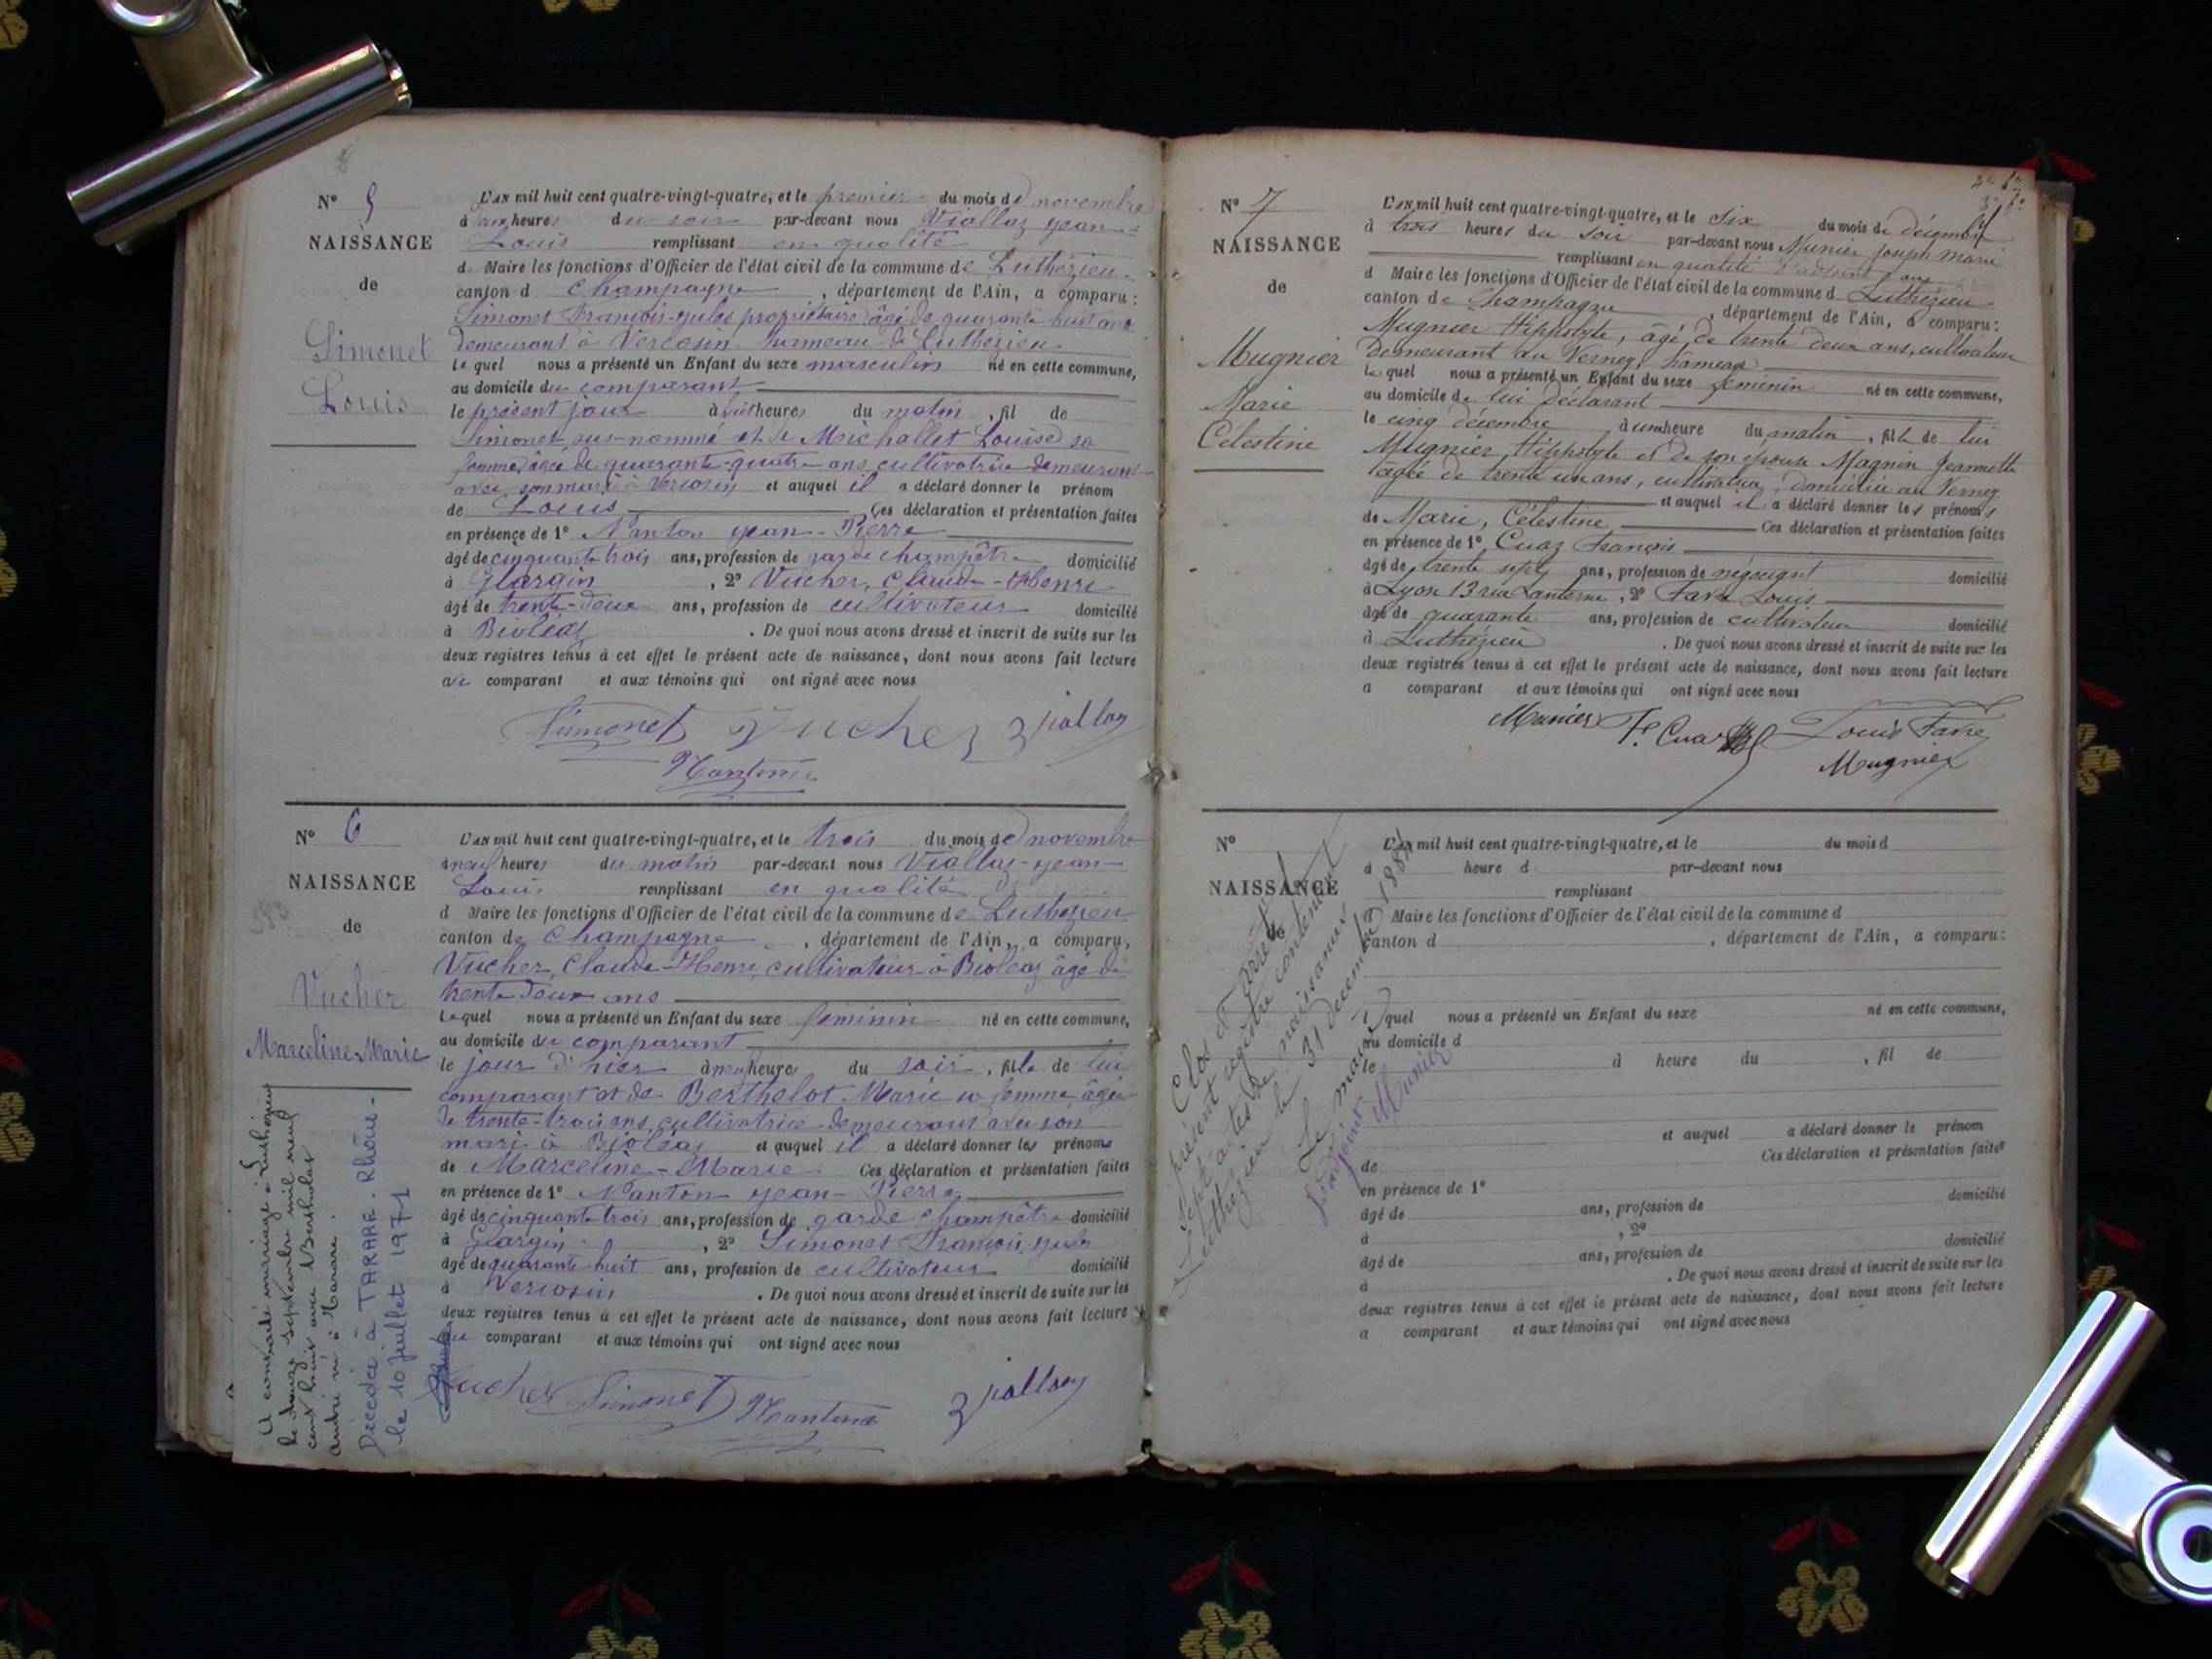 N° 5
NAISSANCE
de
Simonet
Louis
L'AN mil huit cent quatre-vingt-quatre, et le premier du mois de novembre
à deux heures du soir par-devant nous Viallaz Jean-
Louis remplissant en qualité
de Maire les fonctions d'Officier de l'état civil de la commune de Luthézieu
canton d Champagne, département de l'Ain, a comparu:
Simonet François-Jules propriétaire, âgé de quarante-huit ans
demeurant à Vercosin hameau de Luthézieu
lequel nous a présenté un Enfant du sexe masculin né en cette commune,
au domicile du comparant
le présent jour à huit heures du matin, fil de
Simonet sus-nommé et de Michallet Louise sa
femme, âgée de quarante-quatre ans, cultivatrice demeurant
avec son mari à Vercosin et auquel il a déclaré donner le prénom
de Louis Ces déclaration et présentation faites
en présence de 1° Nanton Jean-Pierre
âgé de cinquante trois ans, profession de garde champêtre domicilié
à Glargin, 2° Vucher, Claude-Henri
âgé de trente-deux ans, profession de cultivateur domicilié
à Bioléaz. De quoi nous avons dressé et inscrit de suite sur les
deux registres tenus à cet effet le présent acte de naissance, dont nous avons fait lecture
au comparant et aux témoins qui ont signé avec nous
Simonet Vucher Viallaz
Nanton
N° 6
NAISSANCE
de
Vucher
Marceline-Marie
A contracté mariage à Luthézieu
le douze septembre mil neuf
cent huit avec Berthelot
André né à
Décédée à TARARE-Rhône-
le 10 juillet 1971
L'AN mil huit cent quatre-vingt-quatre, et le trois du mois de novembre
à neuf heures du matin par-devant nous Viallaz-Jean-
Louis remplissant en qualité
d Maire les fonctions d'Officier de l'état civil de la commune de Luthézieu
canton de Champagne, département de l'Ain, a comparu,
Vucher, Claude-Henri, cultivateur à Bioléaz âgé de
trente deux ans
lequel nous a présenté un Enfant du sexe féminin né en cette commune,
au domicile du comparant
le jour d'hier à neuf heures du soir, fille de lui
comparant et de Berthelot Marie sa femme, âgée
de trente-trois ans, cultivatrice demeurant avec son
mari à Bioléaz et auquel il a déclaré donner les prénoms
de Marceline-Marie Ces déclaration et présentation faites
en présence de 1° Nanton Jean-Pierre
âgé de cinquante trois ans, profession de garde champêtre domicilié
à Glargin, 2° Simonet François-Jules
âgé de quarante huit ans, profession de cultivateur domicilié
à Vercosin. De quoi nous avons dressé et inscrit de suite sur les
deux registres tenus à cet effet le présent acte de naissance, dont nous avons fait lecture
au comparant et aux témoins qui ont signé avec nous
Vucher Simonet Nanton Viallaz
N° 7
NAISSANCE
de
Mugnier
Marie
Célestine
L'AN mil huit cent quatre-vingt-quatre, et le Six du mois de décembre
à trois heures du soir par-devant nous Munier Joseph Marie
remplissant en qualité d'adjoint au
d Maire les fonctions d'Officier de l'état civil de la commune d Luthézieu
canton de Champagne, département de l'Ain, a comparu:
Mugnier Hippolyte, âgé de trente deux ans, cultivateur
demeurant au Verney, hameau
lequel nous a présenté un Enfant du sexe féminin né en cette commune,
au domicile de lui déclarant
le cinq décembre à une heure du matin, fille de lui
Mugnier Hippolyte et de son épouse Magnin Jeannette
âgée de trente un ans, cultivatrice, domiciliée au Verney
et auquel il a déclaré donner les prénoms
de Marie, Célestine Ces déclaration et présentation faites
en présence de 1° Cuaz François
âgé de trente sept ans, profession de négociant domicilié
à Lyon 13 rue Lanterne, 2° Favre Louis
âgé de quarante ans, profession de cultivateur domicilié
à Luthézieu. De quoi nous avons dressé et inscrit de suite sur les
deux registres tenus à cet effet le présent acte de naissance, dont nous avons fait lecture
a comparant et aux témoins qui ont signé avec nous
Munier F. Cuaz Louis Favre
Mugnier
N°
NAISSANCE
de
Clos et arrêté le
présent registre contenant
sept actes de naissances
Luthézieu le 31 décembre 1884
Le maire
L'adjoint Munier
L'AN mil huit cent quatre-vingt-quatre, et le du mois d
à heure d par-devant nous
remplissant
d Maire les fonctions d'Officier de l'état civil de la commune d
canton d , département de l'Ain, a comparu:
lequel nous a présenté un Enfant du sexe né en cette commune,
au domicile d
le à heure du , fil de
et auquel a déclaré donner le prénom
de Ces déclaration et présentation faites
en présence de 1°
âgé de ans, profession de domicilié
à , 2°
âgé de ans, profession de domicilié
à . De quoi nous avons dressé et inscrit de suite sur les
deux registres tenus à cet effet le présent acte de naissance, dont nous avons fait lecture
a comparant et aux témoins qui ont signé avec nous